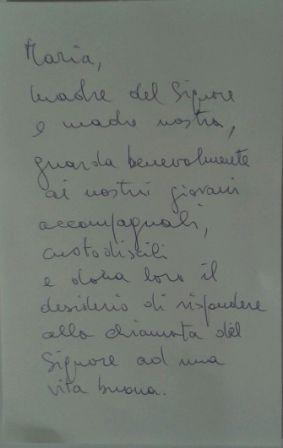 Maria,
madre del Signore
e madre nostra,
guarda benevolmente
ai nostri giovani
accompagnali,
custodiscili
e dona loro il
desiderio di rispondere
alla chiamata del
Signore ad una
vita buona.